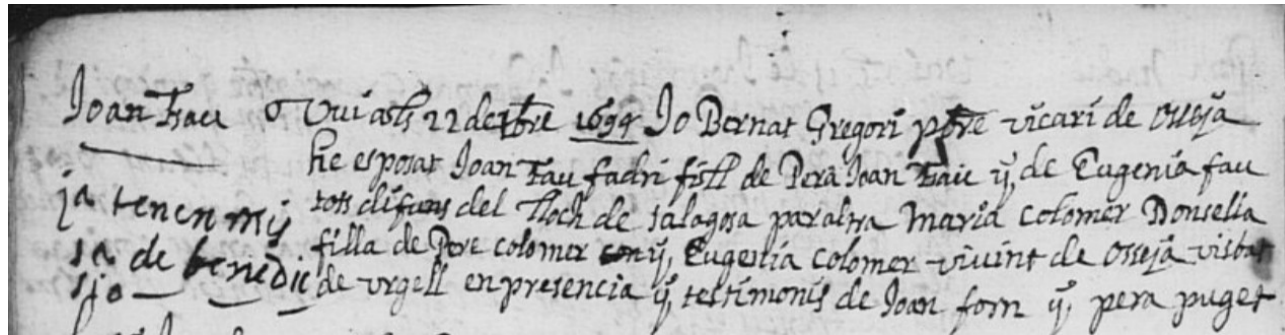 Joan Fau Vui als 22 de xbre 1694 Jo Bernat Gregori pbre vicari de osseja
he esposat Joan Fau fadri fill de Pera Joan Fau ÿ de Eugenia fau
ja tenen mij tots difuns del lloch de salagosa par altra Maria colomer Donsella
sa de benedic filla de Pere colomer ÿ Eugenia colomer vivint de osseja visbat
sio de urgell en presencia ÿ testimonis de Joan forn ÿ pera puget